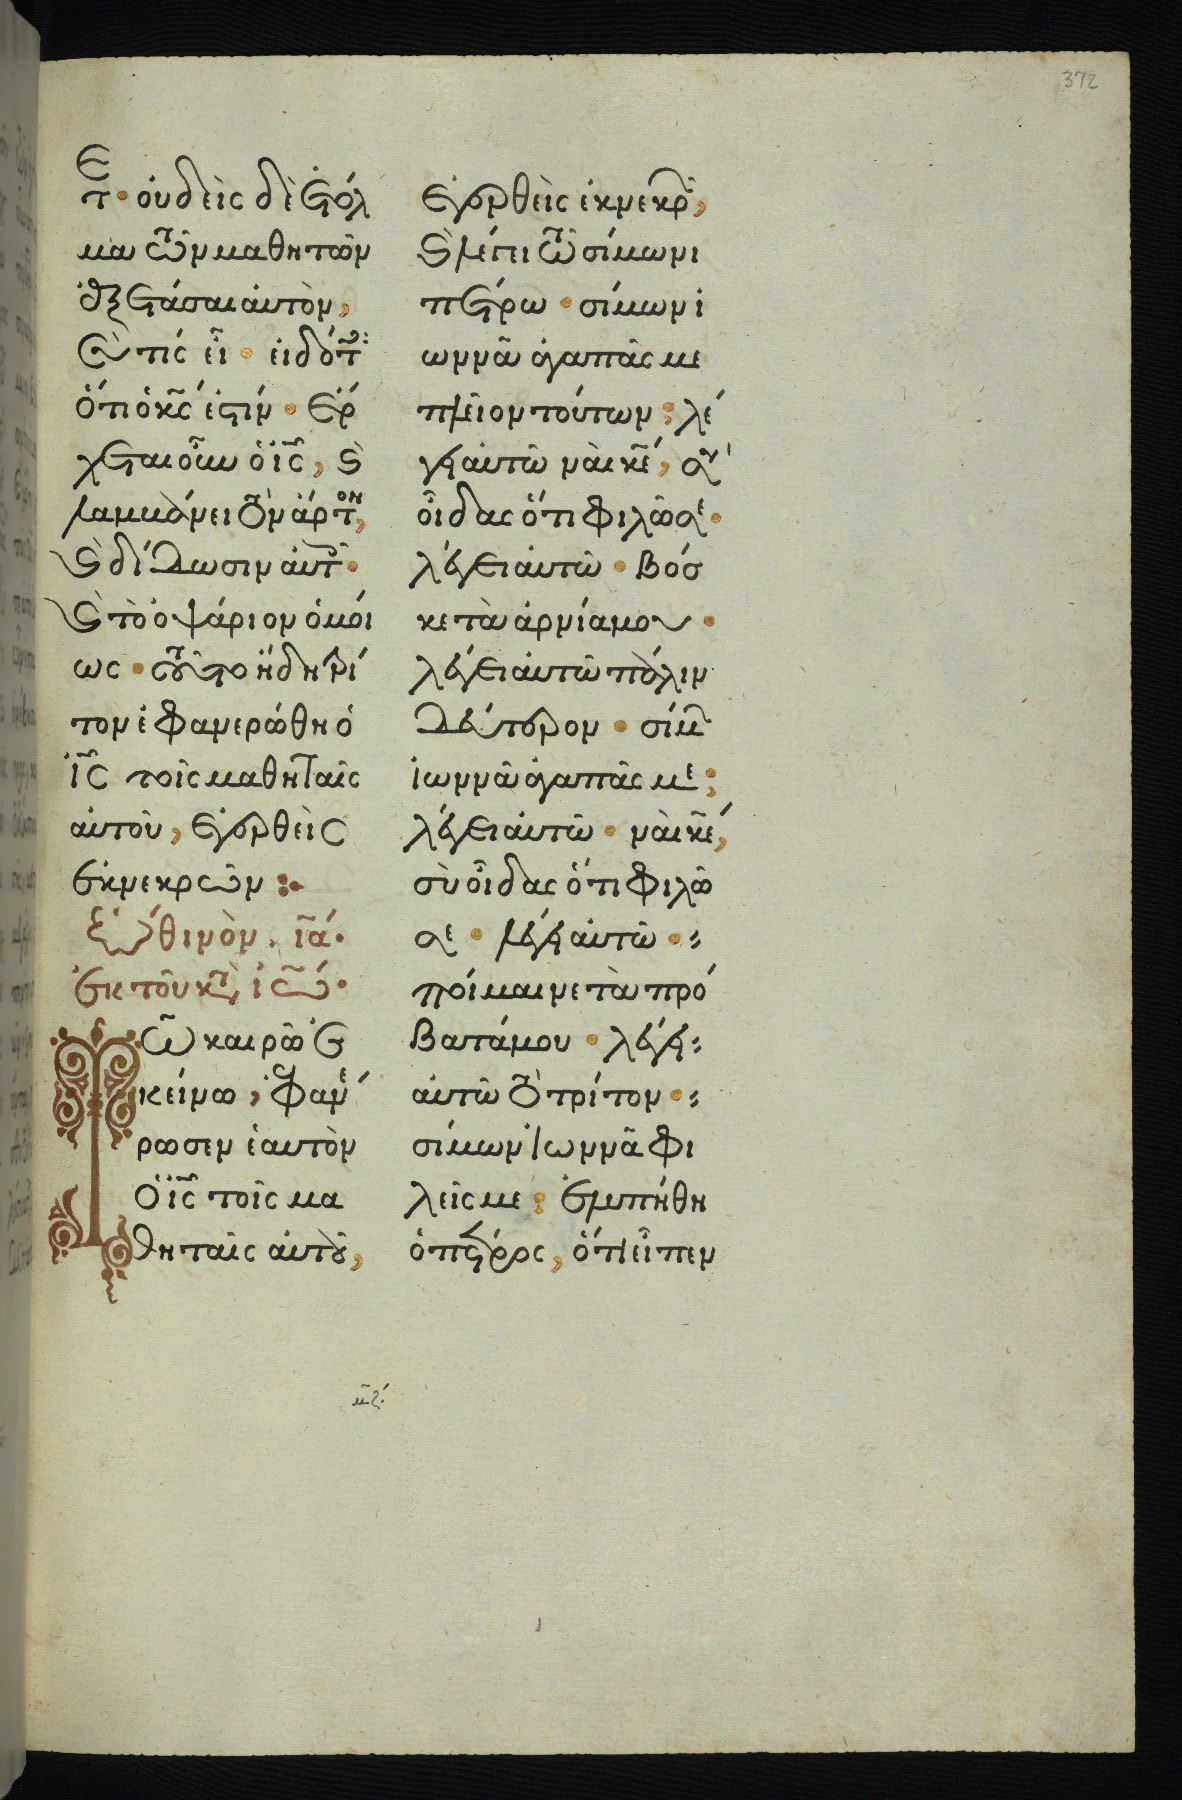 372
τε· οὐδεὶς δὲ ἐτόλ
μα τῶν μαθητῶν
ἐξετάσαι αὐτὸν,
σὺ τίς εἶ· εἰδότες
ὅτι ὁ κ̅ς ἐστίν· ἔρ
χεται οὖν ὁ ἰ̅ς, καὶ
λαμβάνει τὸν ἄρτον,
καὶ δίδωσιν αὐτοῖς·
καὶ τὸ ὀψάριον ὁμοί
ως· τοῦτο ἤδη τρί
τον ἐφανερώθη ὁ
ἰ̅ς τοῖς μαθηταῖς
αὐτοῦ, ἐγερθεὶς
ἐκ νεκρῶν :·
Ἑωθινὸν. ια̅·
ἐκ τοῦ κατὰ ἰω̅·
Τῶ καιρῶ ἐ
κείνω, ἐφανέ
ρωσεν ἑαυτὸν
ὁ ἰ̅ς τοῖς μα
θηταῖς αὐτοῦ,
ἐγερθεὶς ἐκ νεκρῶν,
καὶ λέγει τῶ σίμωνι
πέτρω· σίμων ἰ
ωννᾶ ἀγαπᾶς με
πλεῖον τούτων; λέ
γει αὐτῶ ναὶ κ̅ε, σὺ
οἶδας ὅτι φιλῶ σε·
λέγει αὐτῶ· βόσ
κε τὰ ἀρνία μου·
λέγει αὐτῶ πάλιν
δεύτερον· σίμων
ἰωννᾶ ἀγαπᾶς με;
λέγει αὐτῶ· ναὶ κ̅ε,
σὺ οἶδας ὅτι φιλῶ
σε· λέγει αὐτῶ·
ποίμαινε τὰ πρό
βατά μου· λέγει
αὐτῶ τὸ τρίτον·
σίμων ἰωννᾶ φι
λεῖς με; ἐλυπήθη
ὁ πέτρος, ὅτι εἶπεν
μ̅ζ·